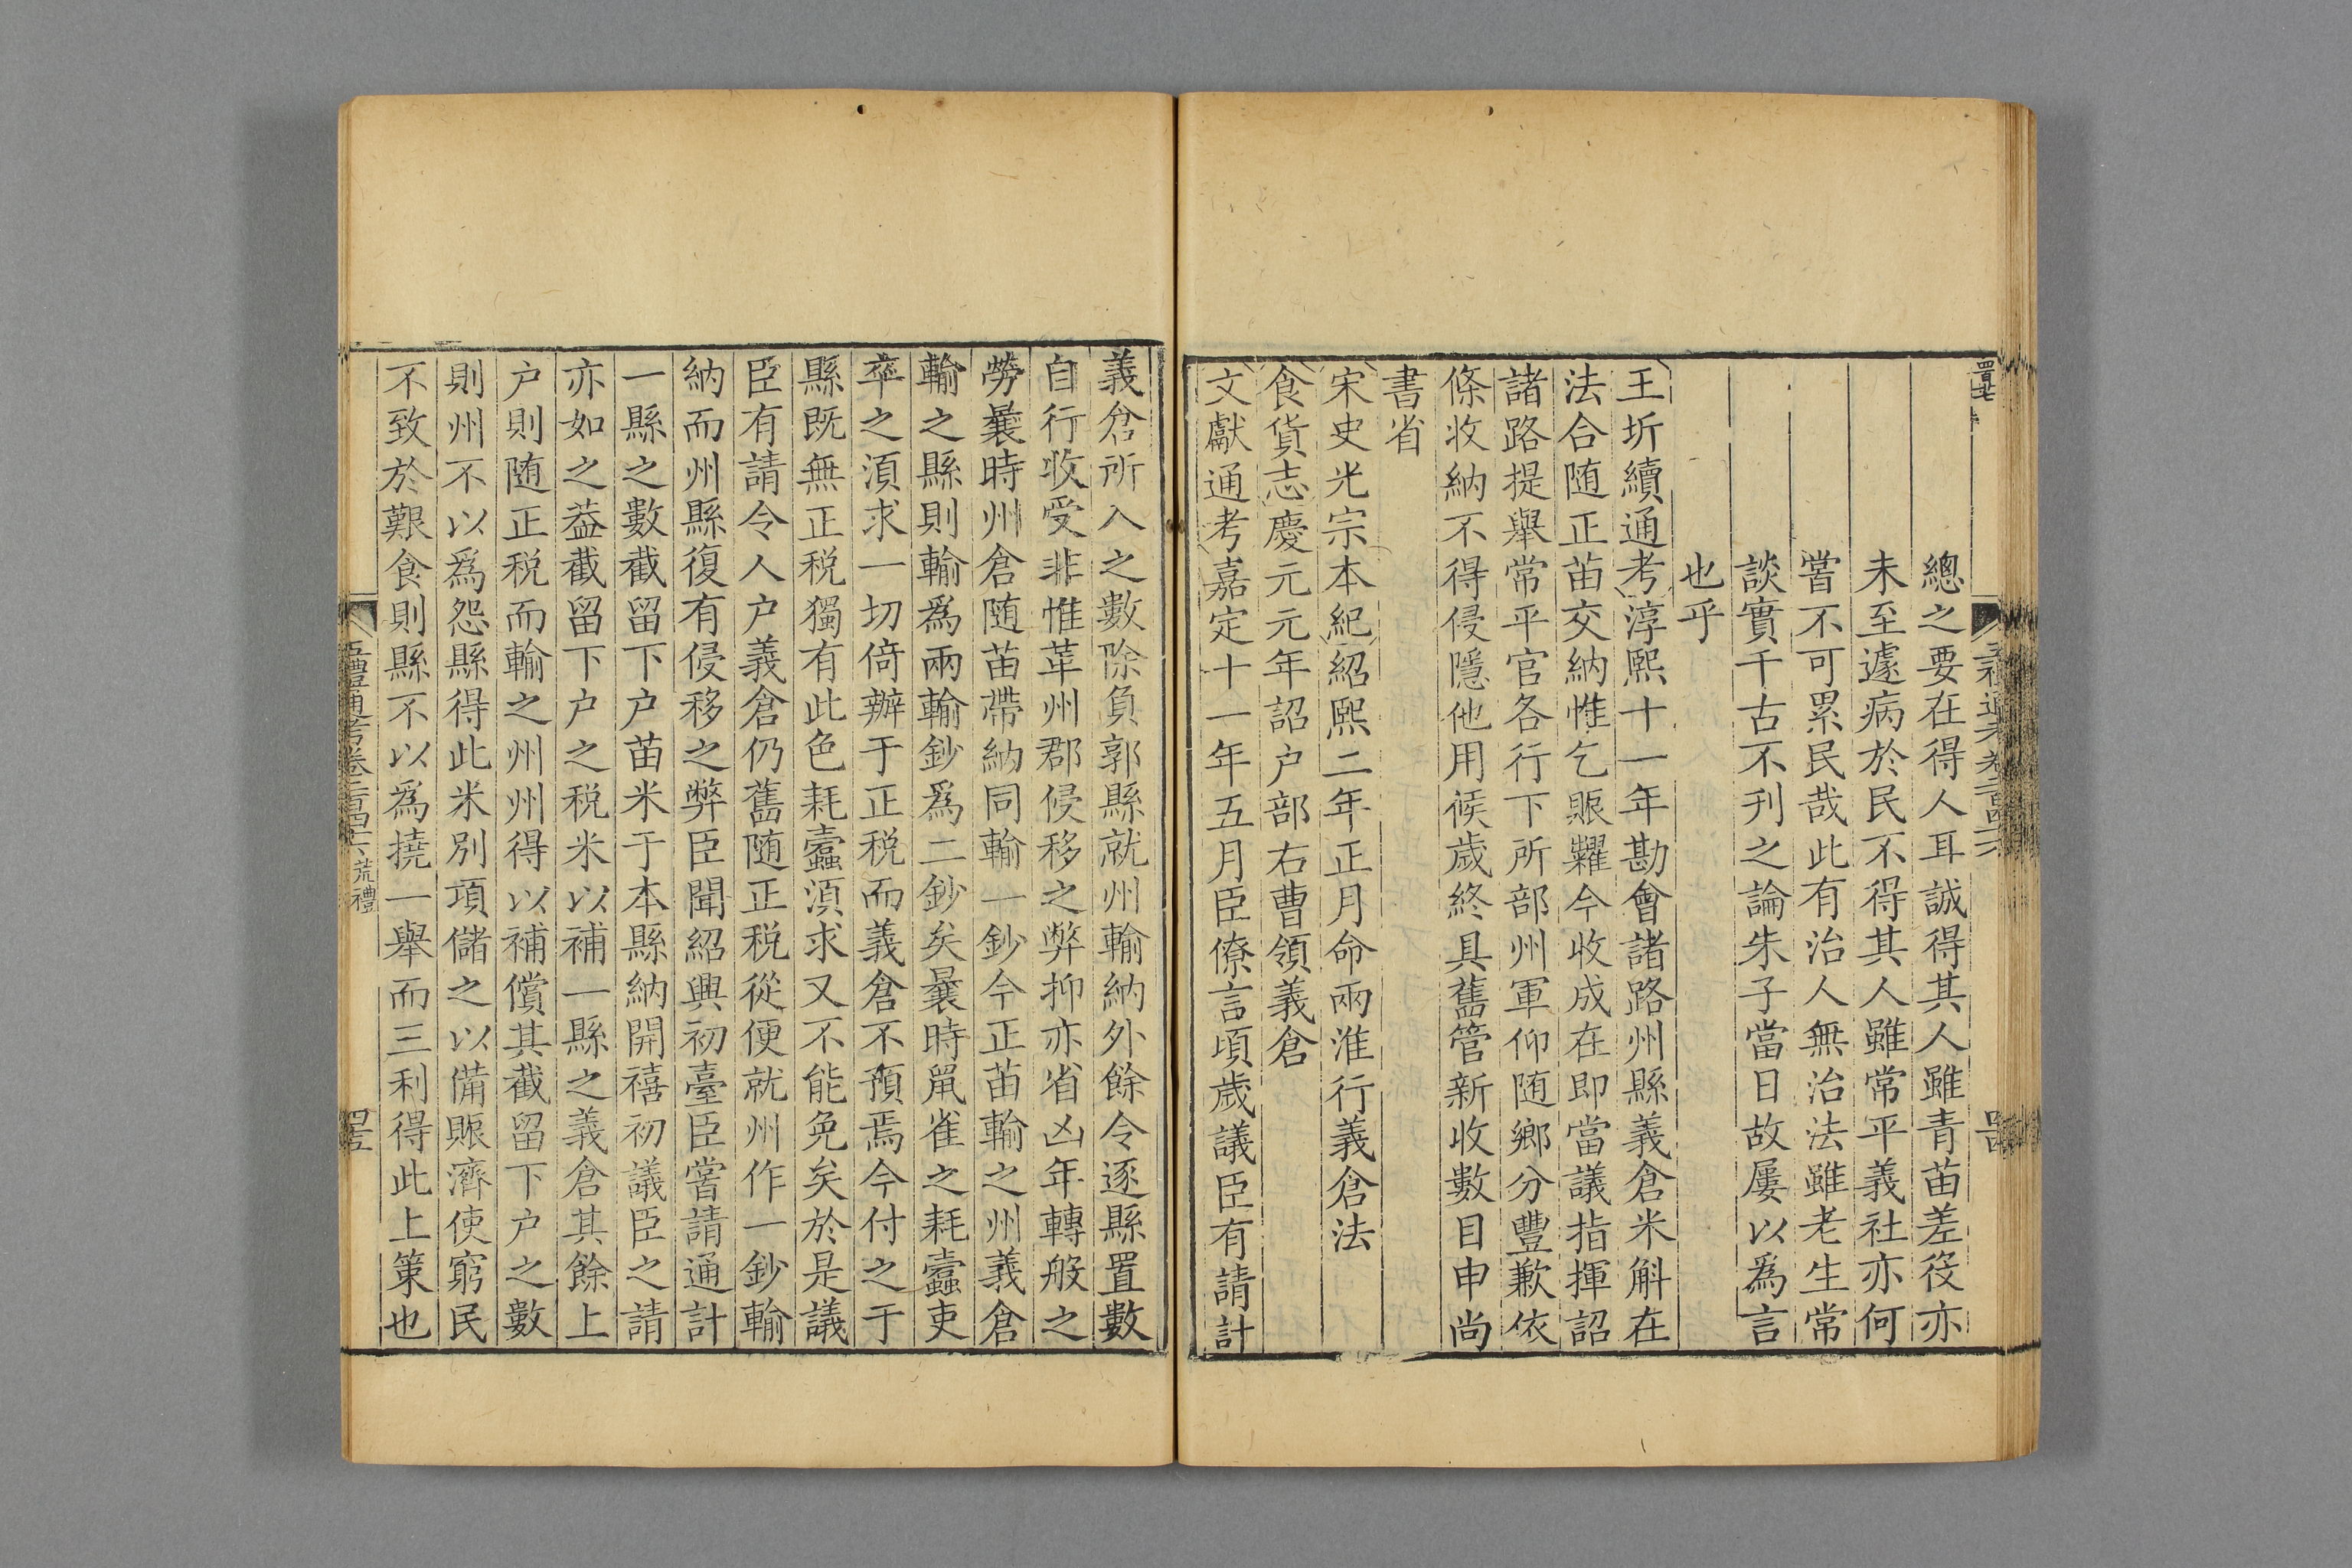 總之要在得人耳誠得其人雖青苗差役亦
未至遽病於民不得其人雖常平義社亦何
嘗不可累民哉此有治人無治法雖老生常
談實千古不刊之論朱子當日故屢以為言
也乎
王圻續通考淳熙十一年勘會諸路州縣義倉米斛在
法合随正苗交納惟乞賑糶今收成在即當議指揮詔
諸路提舉常平官各行下所部州軍仰随鄉分豐歉依
條收納不得侵隱他用候歲終具舊管新收數目申尚
書省
宋史光宗本紀紹熙二年正月命兩淮行義倉法
食貨志慶元元年詔户部右曹領義倉
文獻通考嘉定十一年五月臣僚言頃歲議臣有請計
義倉所入之數除負郭縣就州輸納外餘令逐縣置數
自行收受非惟革州郡侵移之弊抑亦省凶年轉般之
勞曩時州倉随苗帶納同輸一鈔今正苗輸之州義倉
輸之縣則輸為兩輸鈔為二鈔矣曩時鼠雀之耗蠹吏
卒之湏求一切倚辦于正税而義倉不預焉今付之于
縣既無正税獨有此色耗蠹湏求又不能免矣於是議
臣有請令人户義倉仍舊随正税從便就州作一鈔輸
納而州縣復有侵移之弊臣聞紹興初臺臣嘗請通計
一縣之數截留下户苗米于本縣納開禧初議臣之請
亦如之葢截留下户之税米以補一縣之義倉其餘上
户則随正税而輸之州州得以補償其截留下户之數
則州不以爲怨縣得此米別項儲之以備賑濟使窮民
不致於艱食則縣不以爲撓一舉而三利得此上策也
五禮通考卷二百四十六 荒禮